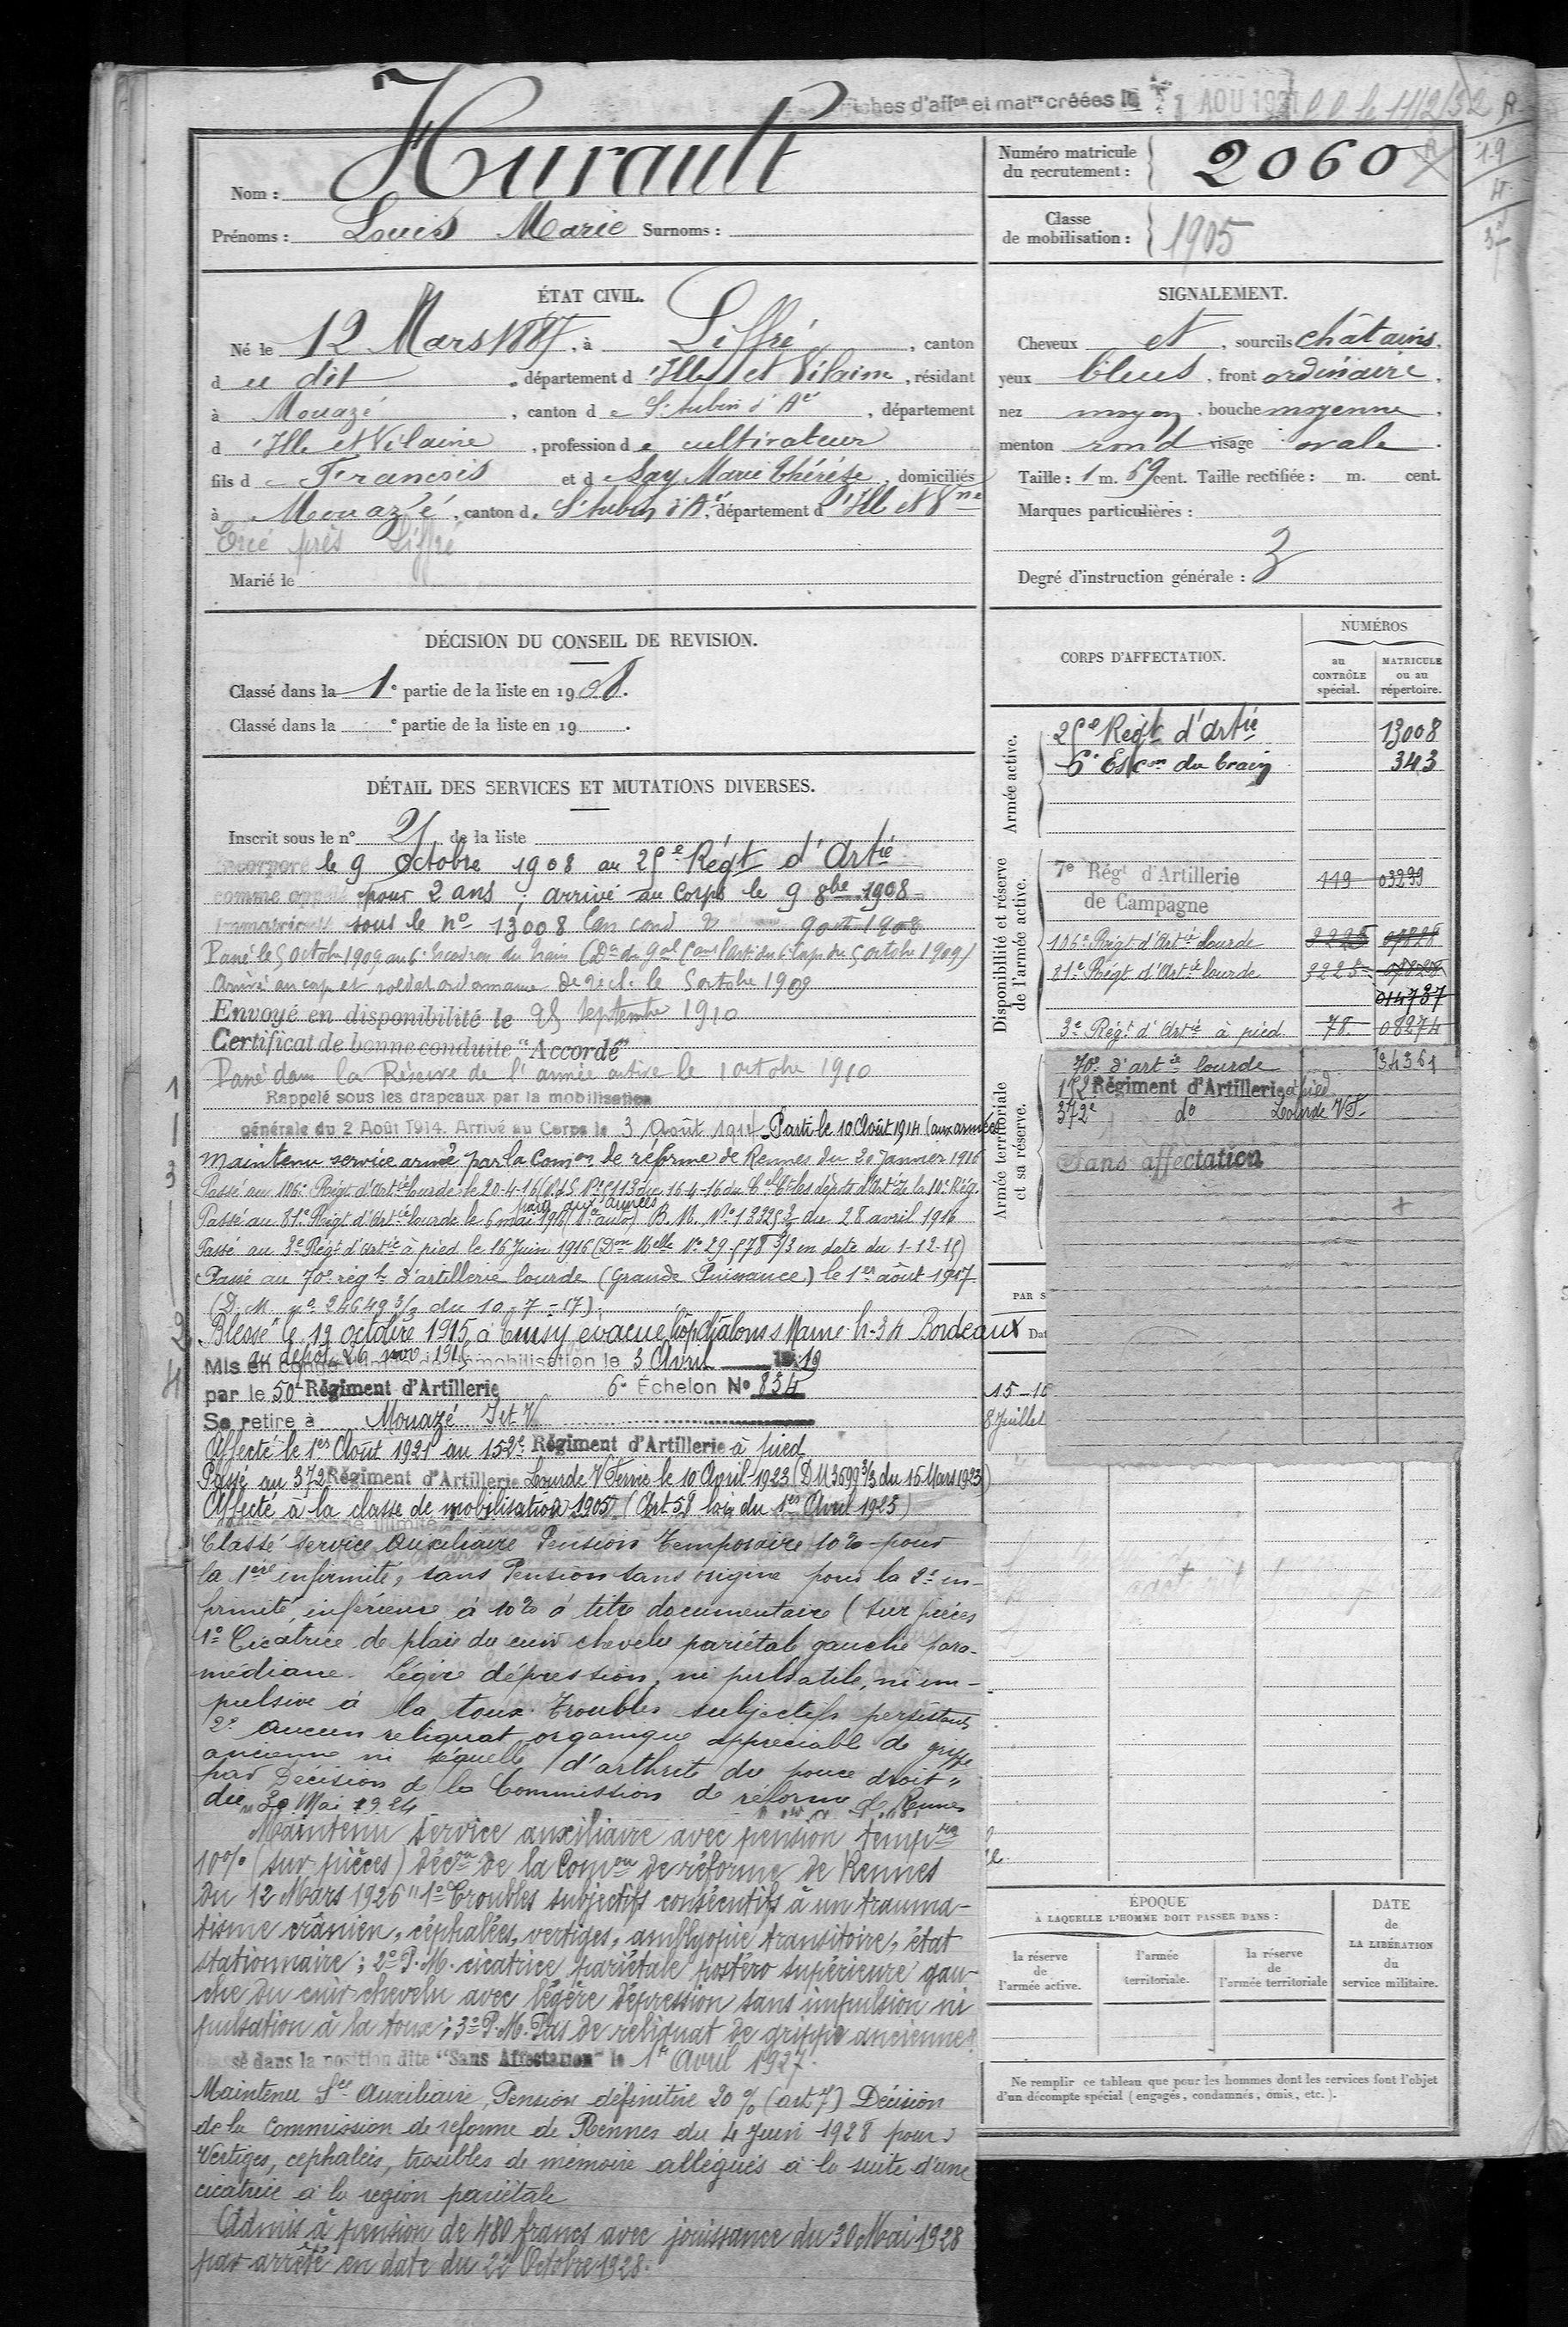 ches d'affon et matre créées le AOU 1921
Nom : Hurault
Prénoms : Louis Marie Surnoms :
Numéro matricule du recrutement : 2060
Classe de mobilisation : 1905
ÉTAT CIVIL.
Né le 12 Mars 1887, à Liffré, canton
du dit, département d'Ille et Vilaine, résidant
à Mouazé, canton de St Aubin d'Aer, département
d'Ille et Vilaine, profession de cultivateur
fils de François et de Say Marie Thérèse, domiciliés
à Mouazé, canton d. St Aubin d'Aer, département d'Ill et Vne
près Liffré
Marié le
SIGNALEMENT.
Cheveux et, sourcils châtains,
yeux bleus, front ordinaire,
nez moyen, bouche moyenne,
menton rond visage ovale.
Taille : 1 m. 69 cent. Taille rectifiée : m. cent.
Marques particulières :
Degré d'instruction générale : 3
DÉCISION DU CONSEIL DE REVISION.
Classé dans la 1e partie de la liste en 1908.
Classé dans la e partie de la liste en 19 .
DÉTAIL DES SERVICES ET MUTATIONS DIVERSES.
Inscrit sous le n° 21 de la liste
Incorporé le 9 Octobre 1908 au 25e Régt d'Artie
comme appelé pour 2 ans ; arrivé au Corps le 9 8bre 1908
immatriculé sous le no 13008 Can cond 1908
Passé le 5 octobre 1909 au 6e Escadron du Train (Don du Gal Comt l'Artie du 6e Corps du 5 octobre 1909)
Arrivé au corps et soldat ordonnance de 2e cl. le 5 octobre 1909
Envoyé en disponibilité le 25 septembre 1910
Certificat de bonne conduite "Accordé"
Passé dans la Réserve de l'armée active le 1 octobre 1910
Rappelé sous les drapeaux par la mobilisation
générale du 2 Août 1914. Arrivé au Corps le 3 Août 1914. Parti le 10 Août 1914 (aux armées)
Maintenu service armé par la Comon de réforme de Rennes du 20 Janvier 1916
Passé au 106e Régt d'Artie lourde le 20-4-16 du 16-4-16 du Cel Ct les dépôts d'Artie de la 10e Rég.
parti aux armées
Passé au 81e Régt d'Artie lourde le 6 mai 1916 B. M. No 13325 3/3 du 28 avril 1916
Passé au 3e Régt d'Artie à pied le 16 Juin 1916 (Don Melle No 29.578 3/3 en date du 1-12-15)
Passé au 70e régt d'artillerie lourde (Grande Puissance) le 1er août 1917
(D. M. no 24649 3/3 du 10-7-17).
Blessé le 19 octobre 1915 à Thuisy évacué hôp Châlons s Marne h-34 Bordeaux
au dépôt 26 nov 1915
Mis en congé illimité de démobilisation le 3 Avril 1919
par le 50e Régiment d'Artillerie 6e Échelon No 834
Se retire à Mouazé I et V
Affecté le 1er Août 1921 au 152e Régiment d'Artillerie à pied
Passé au 372 Régiment d'Artillerie Lourde V Ferrée le 10 Avril 1923 (DM 3699 3/3 du 16 Mars 1923)
Affecté à la classe de mobilisation 1905 (Art 58 loi du 1er Avril 1923)
Classé service Auxiliaire Pension Temporaire 10% pour
la 1ère infirmité, sans Pension sans origine pour la 2e in-
firmité, inférieure à 10% à titre documentaire (sur pièces
1° Cicatrice de plaie du cuir chevelu pariétale gauche para-
médiane. Légère dépression, ni pulsatile, ni im-
pulsive à la toux. Troubles subjectifs persistants
2° Aucun reliquat organique appréciable de grippe
ancienne ni séquelle d'arthrite du pouce droit"
par Décision de la Commission de réforme de Rennes
du 30 Mai 1924
Maintenu service auxiliaire avec pension tempre
10% (sur pièces) décon de la Comon de réforme de Rennes
du 12 Mars 1926 "1° Troubles subjectifs consécutifs à un trauma-
tisme crânien, céphalées, vertiges, amblyopie transitoire, état
stationnaire ; 2° P. M. cicatrice pariétale postéro supérieure gau-
che du cuir chevelu avec légère dépression sans impulsion ni
pulsation à la toux ; 3° P. M. Pas de reliquat de grippe ancienne"
Classé dans la position dite "Sans Affectation" le 1er Avril 1927.
Maintenu Sce Auxiliaire, Pension définitive 20% (art 7) Décision
de la Commission de réforme de Rennes du 4 Juin 1928 pour
Vertiges, céphalées, troubles de mémoire allégués à la suite d'une
cicatrice à la région pariétale
Admis à pension de 480 francs avec jouissance du 30 Mai 1928
par arrêté en date du 22 Octobre 1928.
CORPS D'AFFECTATION.
NUMÉROS
au CONTRÔLE spécial.
MATRICULE ou au répertoire.
Armée active.
25e Régt d'Artie 13008
6e Escon du train 343
Disponibilité et réserve de l'armée active.
7e Régt d'Artillerie de Campagne 119 03299
106e Régt d'Artie lourde 2225 07828
81e Régt d'Artie lourde 2225 07828
014737
3e Régt d'Artie à pied 78 08274
Armée territoriale et sa réserve.
70e d'artie lourde 34361
152e Régiment d'Artillerie à pied
372e do Lourde V F.
Sans affectation
PAR S
Dat
15-10
8 Juillet
ÉPOQUE
À LAQUELLE L'HOMME DOIT PASSER DANS :
la réserve de l'armée active.
l'armée territoriale.
la réserve de l'armée territoriale
DATE de LA LIBÉRATION du service militaire.
Ne remplir ce tableau que pour les hommes dont les services font l'objet
d'un décompte spécial (engagés, condamnés, omis, etc.).